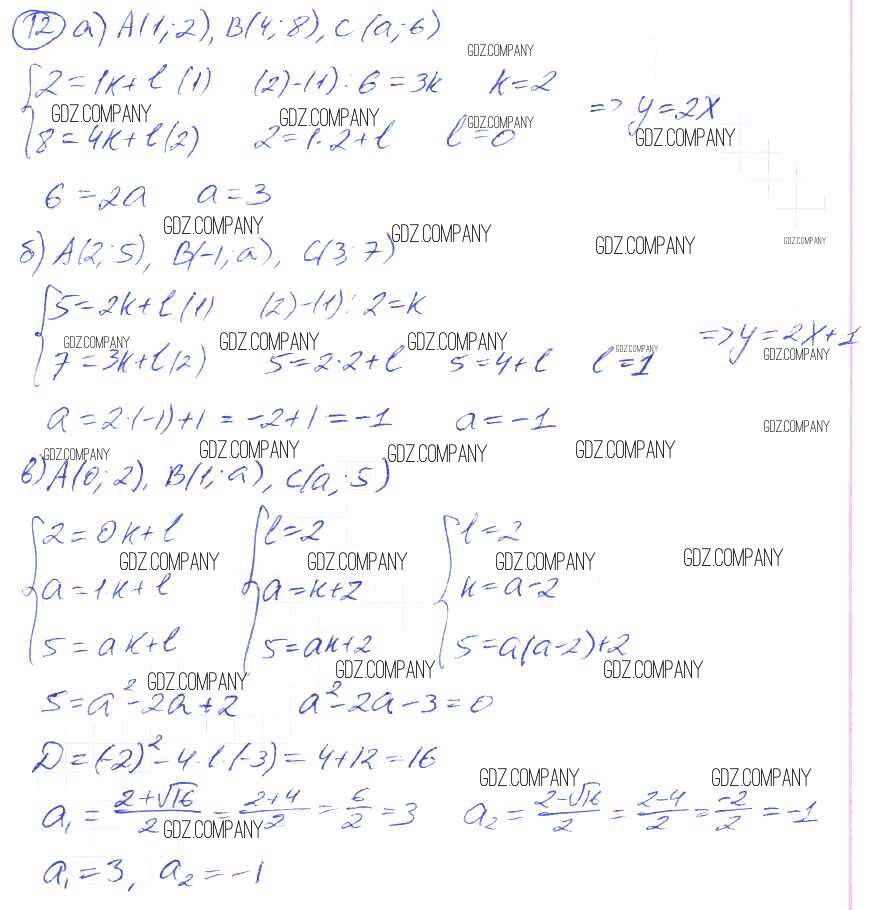 12 а) A(1; 2), B(4; 8), C(a; 6)
GDZ.COMPANY
2 = 1k + l (1) (2)-(1): 6 = 3k k = 2
=> y = 2x
GDZ.COMPANY GDZ.COMPANY GDZ.COMPANY GDZ.COMPANY
8 = 4k + l (2) 2 = 1·2 + l l = 0
6 = 2a a = 3
GDZ.COMPANY GDZ.COMPANY GDZ.COMPANY GDZ.COMPANY
б) A(2; 5), B(-1; a), C(3; 7)
5 = 2k + l (1) (2)-(1): 2 = k
=> y = 2x + 1
GDZ.COMPANY GDZ.COMPANY GDZ.COMPANY GDZ.COMPANY GDZ.COMPANY
7 = 3k + l (2) 5 = 2·2 + l 5 = 4 + l l = 1
a = 2·(-1) + 1 = -2 + 1 = -1 a = -1
GDZ.COMPANY
GDZ.COMPANY GDZ.COMPANY GDZ.COMPANY GDZ.COMPANY
в) A(0; 2), B(1; a), C(a; 5)
2 = 0k + l l = 2 l = 2
GDZ.COMPANY GDZ.COMPANY GDZ.COMPANY GDZ.COMPANY
a = 1k + l a = k + 2 k = a - 2
5 = ak + l 5 = ak + 2 5 = a(a - 2) + 2
GDZ.COMPANY GDZ.COMPANY GDZ.COMPANY
5 = a² - 2a + 2 a² - 2a - 3 = 0
D = (-2)² - 4·1·(-3) = 4 + 12 = 16
GDZ.COMPANY GDZ.COMPANY
a₁ = (2+√16)/2 = (2+4)/2 = 6/2 = 3 a₂ = (2-√16)/2 = (2-4)/2 = -2/2 = -1
GDZ.COMPANY
a₁ = 3, a₂ = -1